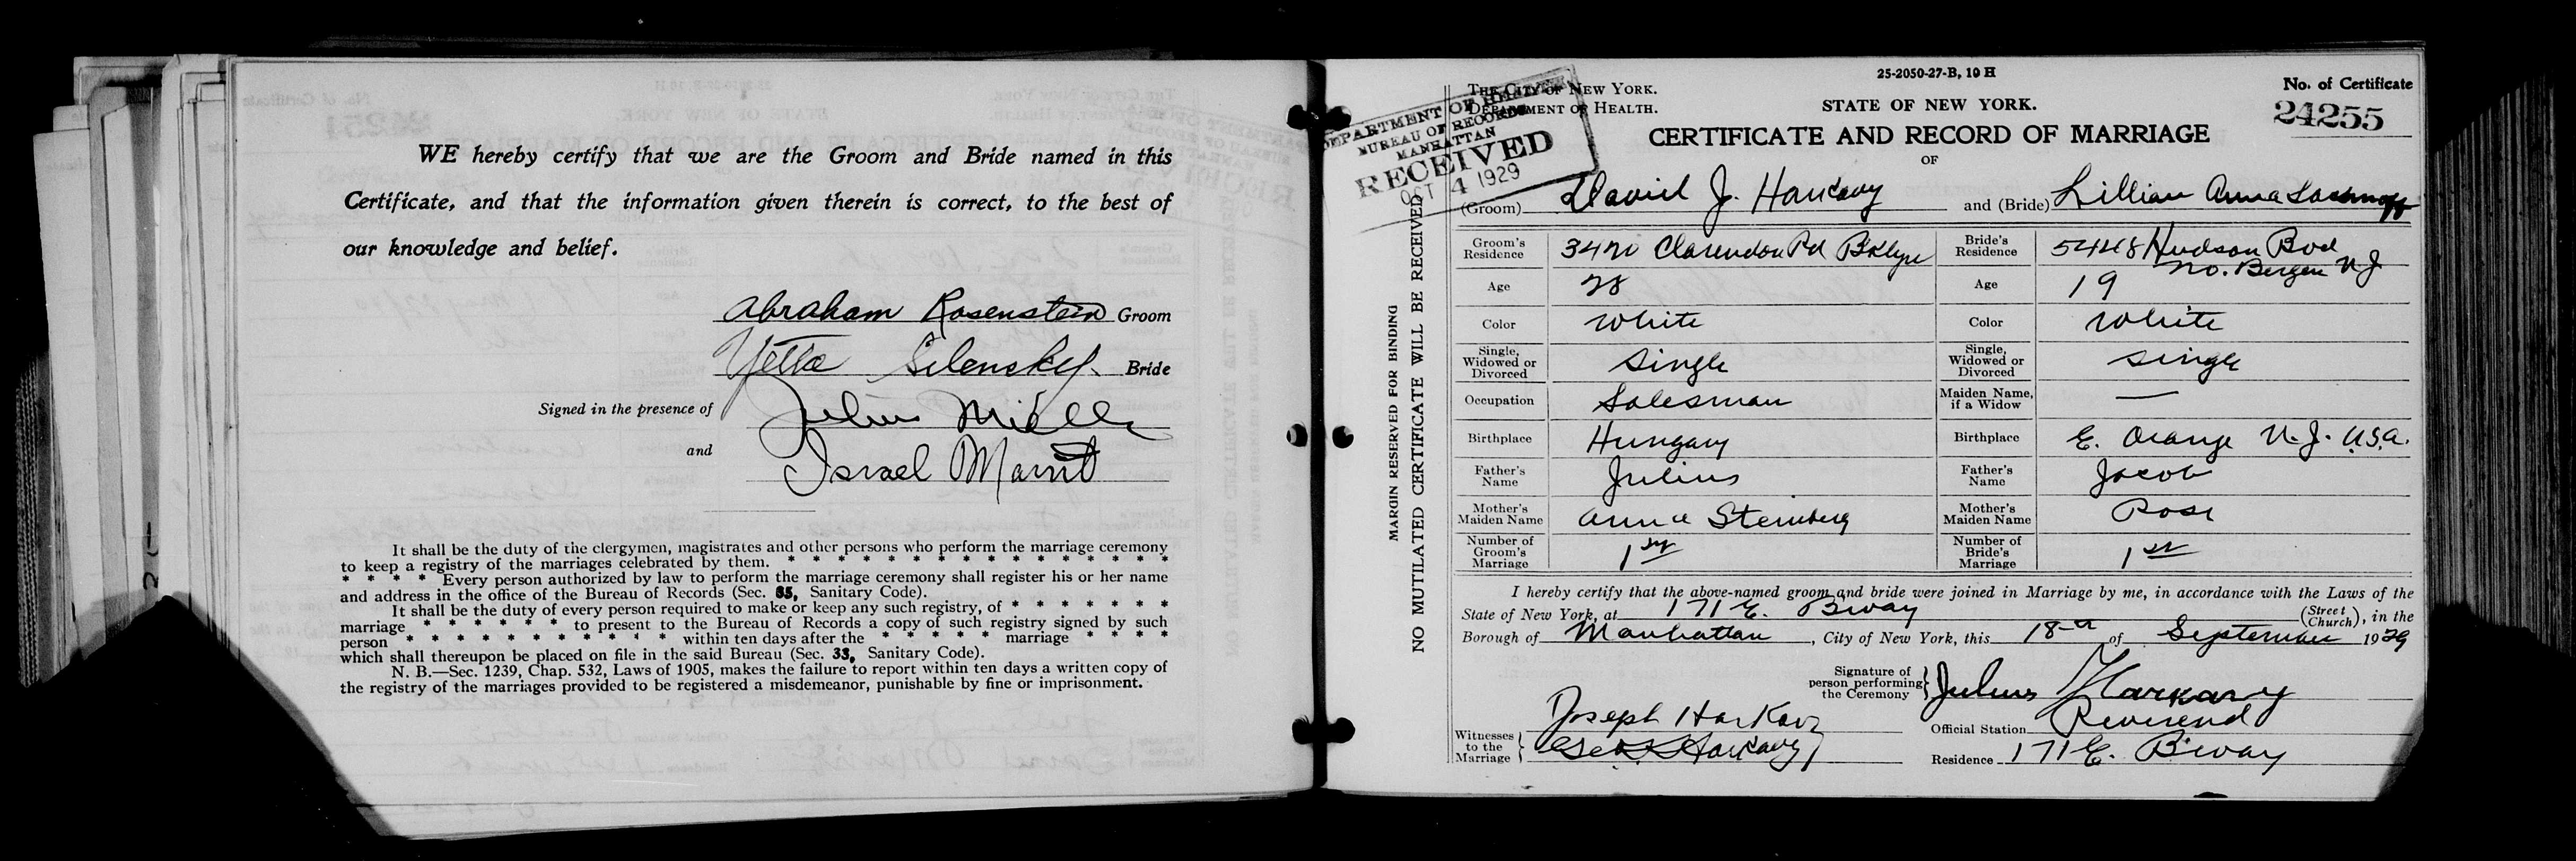 WE hereby certify that we are the Groom and Bride named in this
Certificate, and that the information given therein is correct, to the best of
our knowledge and belief.
Abraham Rosenstein Groom
Yetta Silensky. Bride
Signed in the presence of Julius
and Israel
It shall be the duty of the clergymen, magistrates and other persons who perform the marriage ceremony
to keep a registry of the marriages celebrated by them. * * * * * * * * * * * * *
* * * * Every person authorized by law to perform the marriage ceremony shall register his or her name
and address in the office of the Bureau of Records (Sec. 35, Sanitary Code).
It shall be the duty of every person required to make or keep any such registry, of * * * * * * *
marriage * * * * * * * to present to the Bureau of Records a copy of such registry signed by such
person * * * * * * * * * * * within ten days after the * * * * * marriage * * * *
which shall thereupon be placed on file in the said Bureau (Sec. 33, Sanitary Code).
N. B.—Sec. 1239, Chap. 532, Laws of 1905, makes the failure to report within ten days a written copy of
the registry of the marriages provided to be registered a misdemeanor, punishable by fine or imprisonment.
MARGIN RESERVED FOR BINDING
NO MUTILATED CERTIFICATE WILL BE RECEIVED
25-2050-27-B, 10 H
The City of New York.
Department of Health.
DEPARTMENT OF HEALTH
BUREAU OF RECORDS
MANHATTAN
RECEIVED
OCT 4 1929
STATE OF NEW YORK.
No. of Certificate
24255
CERTIFICATE AND RECORD OF MARRIAGE
OF
(Groom) David J. Harkavy and (Bride) Lillian Anna
Groom's Residence 3420 Clarendon Rd Bklyn Bride's Residence 5448 Hudson Bvd
No. Bergen N J
Age 28 Age 19
Color White Color White
Single, Widowed or Divorced Single Single, Widowed or Divorced single
Occupation Salesman Maiden Name, if a Widow —
Birthplace Hungary Birthplace E. Orange N.J. U.S.A.
Father's Name Julius Father's Name Jacob
Mother's Maiden Name Anna Steinberg Mother's Maiden Name Rose
Number of Groom's Marriage 1st Number of Bride's Marriage 1st
I hereby certify that the above-named groom and bride were joined in Marriage by me, in accordance with the Laws of the
State of New York, at 171 E. Bway (Street Church), in the
Borough of Manhattan, City of New York, this 18th of September 1929
Signature of person performing the Ceremony Julius Harkavy
Official Station Reverend
Residence 171 E. B'way
Witnesses to the Marriage Joseph Harkavy
Harkavy